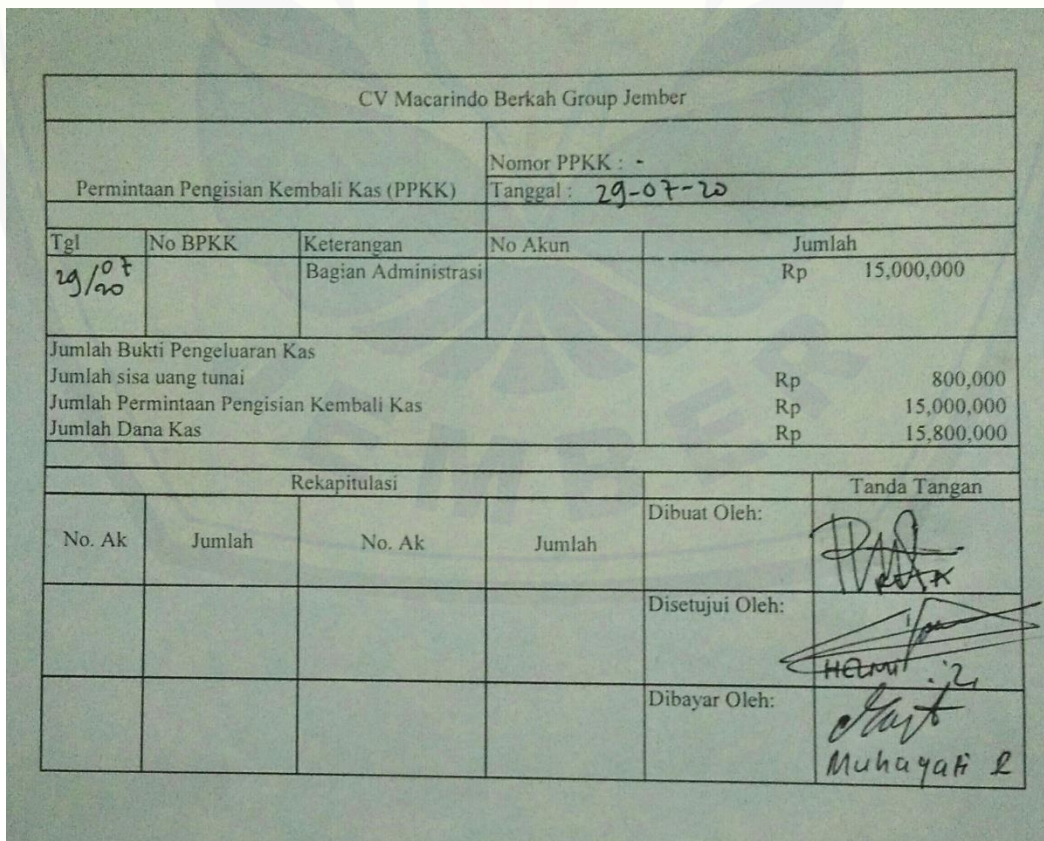 CV Macarindo Berkah Group Jember
Permintaan Pengisian Kembali Kas (PPKK)
Nomor PPKK : -
Tanggal : 29-07-20
Tgl No BPKK Keterangan No Akun Jumlah
29/07 20 Bagian Administrasi Rp 15,000,000
Jumlah Bukti Pengeluaran Kas
Jumlah sisa uang tunai Rp 800,000
Jumlah Permintaan Pengisian Kembali Kas Rp 15,000,000
Jumlah Dana Kas Rp 15,800,000
Rekapitulasi Tanda Tangan
No. Ak Jumlah No. Ak Jumlah Dibuat Oleh:
Disetujui Oleh:
Dibayar Oleh:
Muhayati R
JEMBER